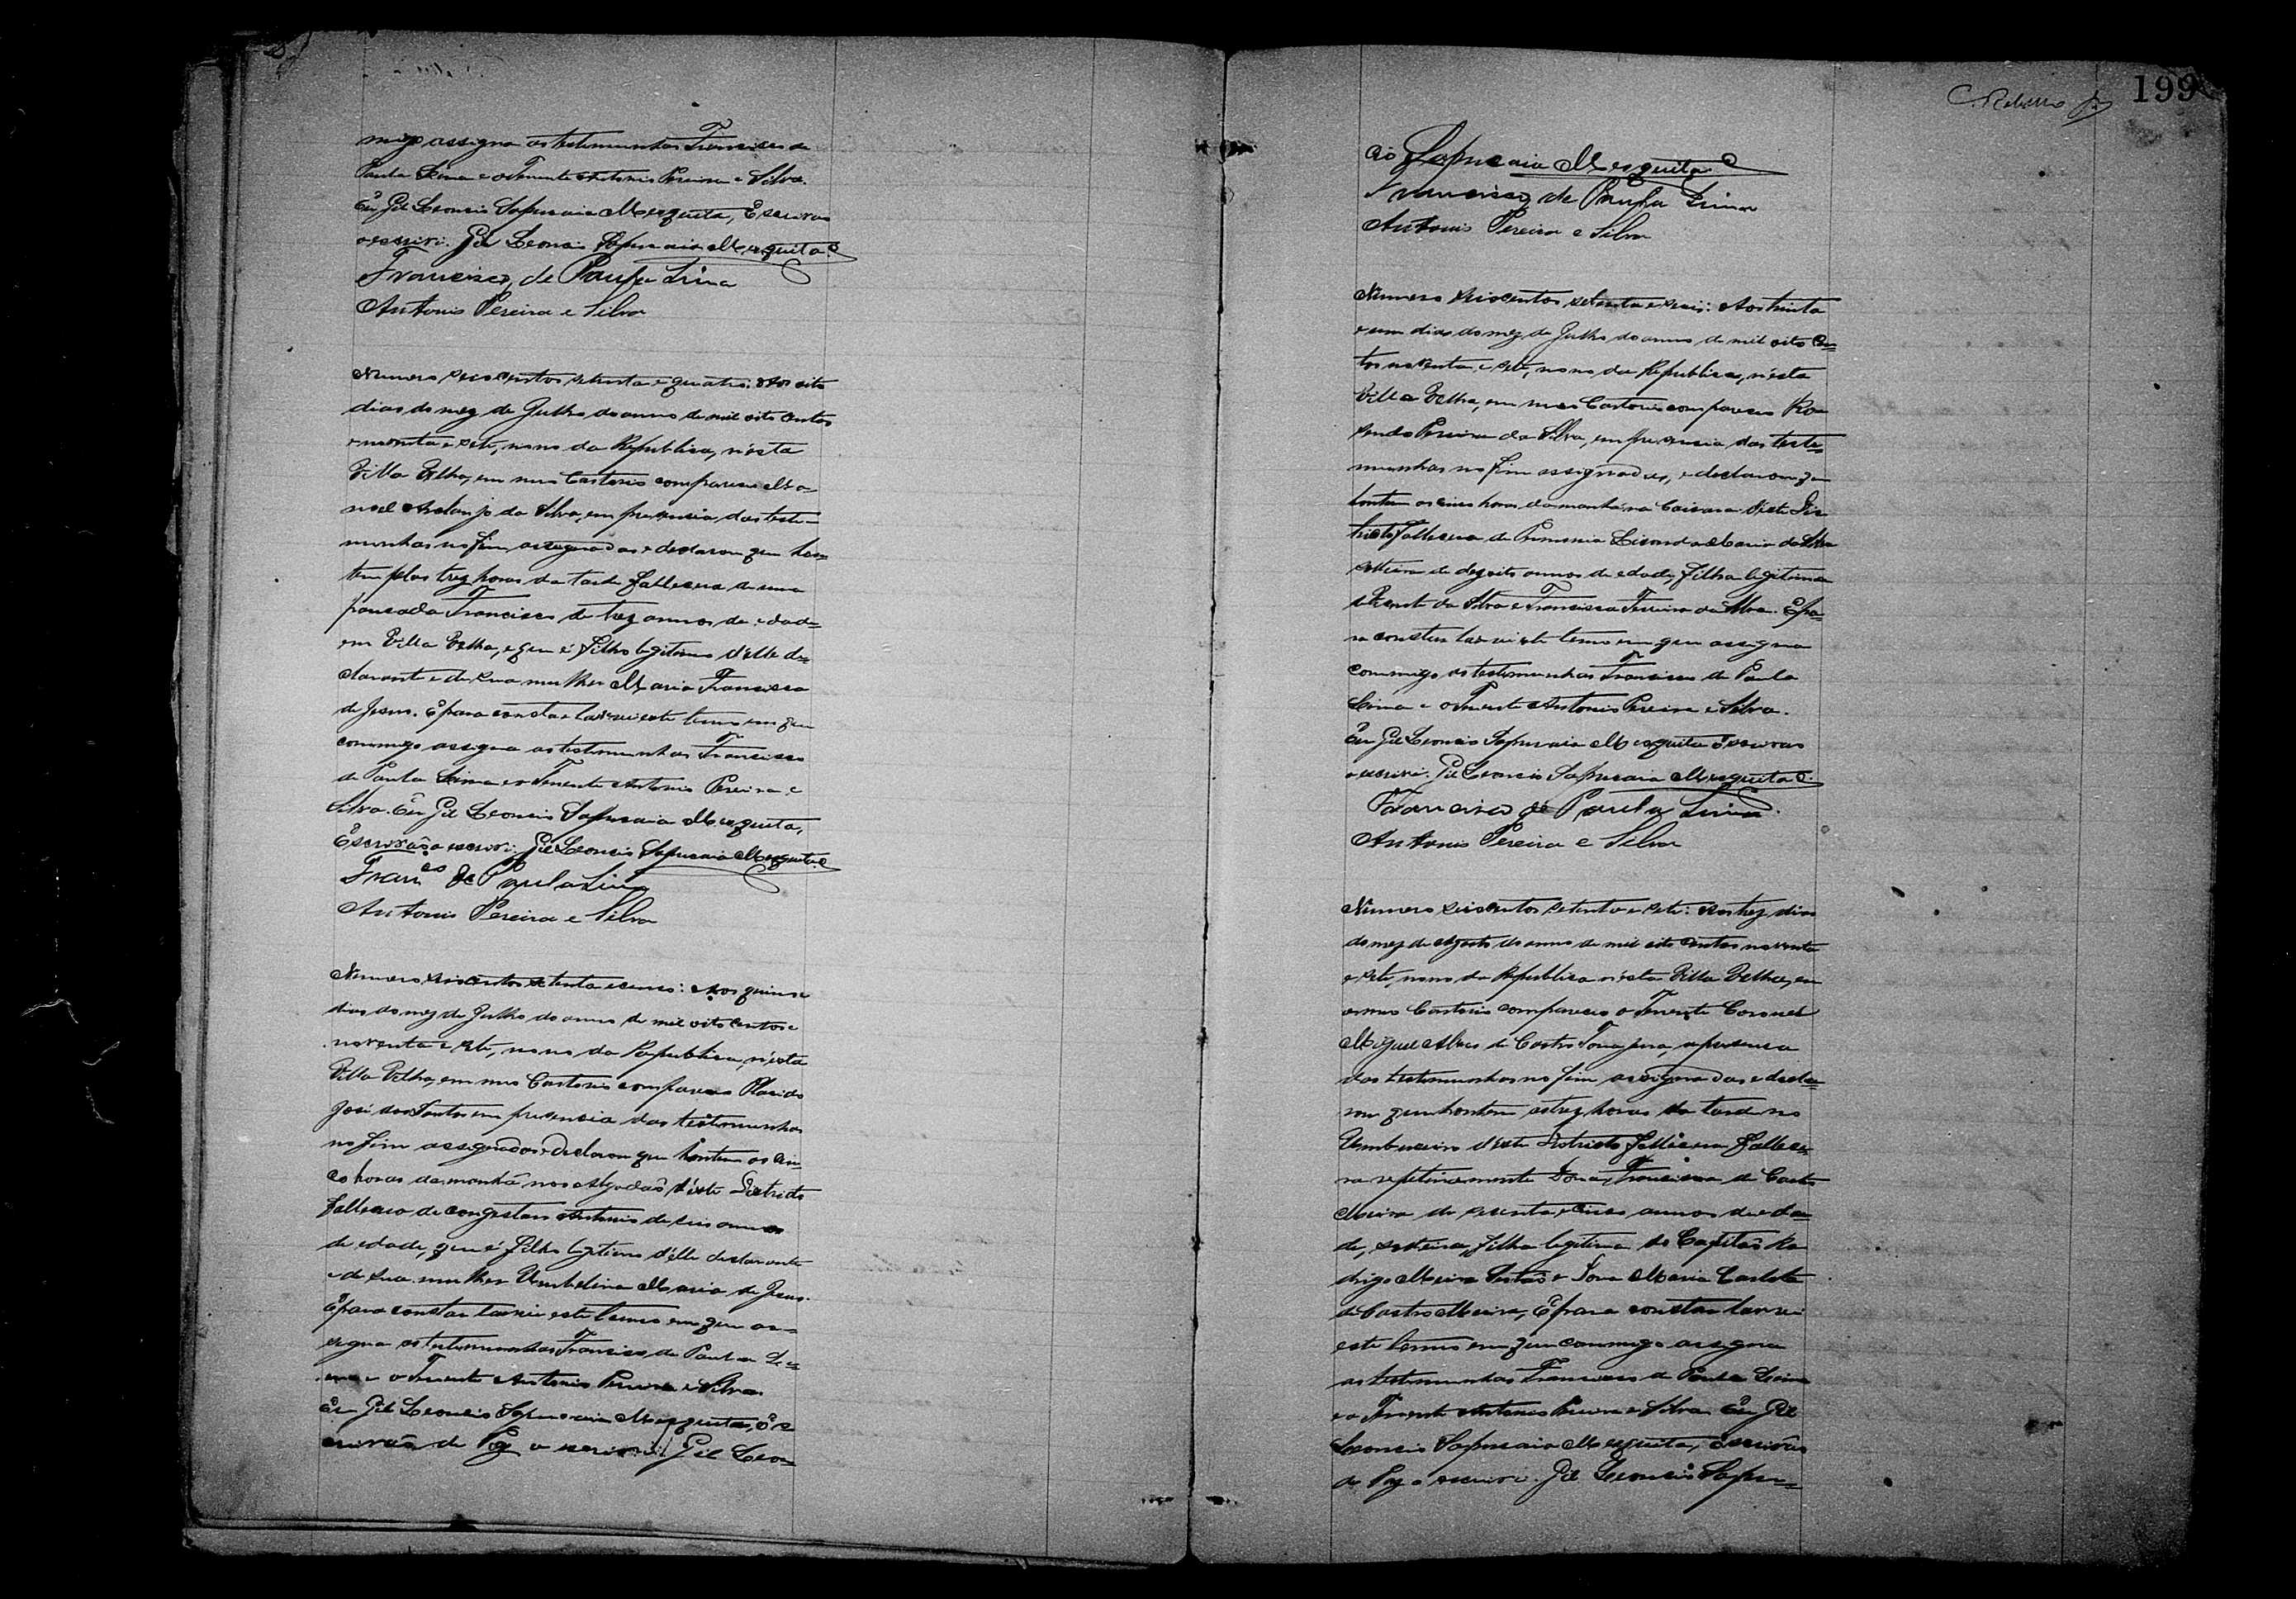 migo assigna as testemunhas Francisco de
Paula Lima e o Tenente Antonio Pereira e Silva.
Eu Gil Leoncio Sapucaia Mesquita, Escrivão
o escrivi. Gil Leoncio Sapucaia Mesquita
Francisco de Paula Lima
Antonio Pereira e Silva
Numero seiscentos setenta e quatro: Aos oito
dias do mez de Julho do anno de mil oito centos
e noventa e sete, nono da Republica, n'esta
Villa Velha, em meu Cartorio compareceu Ma-
noel Archanjo da Silva, em presencia das teste-
munhas no fim assignadas e declarou que hon-
tem pelas trez horas da tarde fallecera de uma
pancada Francisco de trez annos de edade
em Villa Velha, e que é filho legitimo d'elle de-
clarante e de sua mulher Maria Francisca
de Jesus. E para constar lavrei este termo em que
commigo assigna as testemunhas Francisco
de Paula Lima e o Tenente Antonio Pereira e
Silva. Eu Gil Leoncio Sapucaia Mesquita,
Escrivão o escrivi. Gil Leoncio Sapucaia Mesquita
Franco de Paula Lima
Antonio Pereira e Silva
Numero seiscentos setenta e cinco: Aos quinse
dias do mez de Julho do anno de mil oito centos e
noventa e sete, nono da Republica, n'esta
Villa Velha, em meu Cartorio compareceu Placido
José dos Santos em presencia das testemunhas
no fim assignadas e declarou que hontem as cin-
co horas da manhã nos Algodões d'este Districto
falleceo de congestão Antonio de seis annos
de edade, que é filho legitimo d'elle declarante
e de sua mulher Umbelina Maria de Jesus.
E para constar lavrei este termo em que as-
signa as testemunhas Francisco de Paula Li-
ma e o Tenente Antonio Pereira e Silva.
Eu Gil Leoncio Sapucaia Mesquita, Es-
crivão de Paz o escrivi. Gil Leon-
199
Rebello
cio Sapucaia Mesquita
Francisco de Paula Lima
Antonio Pereira e Silva
Numero seiscentos setenta e seis: Aos trinta
e um dias do mez de Julho do anno de mil oito cen-
tos noventa e sete, nono da Republica, n'esta
Villa Velha, em meu Cartorio compareceu Ro-
sendo Pereira da Silva, em presencia das teste-
munhas no fim assignadas, e declarou que
hontem as cinco horas da manhã na Caissara d'este Dis-
tricto fallecera de Maria da Silva
solteira de dezoito annos de edade, filha legitima
de da Silva e Francisca Ferreira da Silva. E pa-
ra constar lavrei este termo em que assigna
commigo as testemunhas Francisco de Paula
Lima e o Tenente Antonio Pereira e Silva.
Eu Gil Leoncio Sapucaia Mesquita Escrivão
o escrivi. Gil Leoncio Sapucaia Mesquita
Francisco de Paula Lima
Antonio Pereira e Silva
Numero seiscentos setenta e sete: Aos trez dias
do mez de Agosto do anno de mil oito centos noventa
e sete, nono da Republica n'esta Villa Velha, em
o meu Cartorio compareceu o Tenente Coronel
Miguel Alves de Castro , a presença
das testemunhas no fim assignadas e decla-
rou que hontem as trez horas da tarde no
Umbuzeiro d'este Districto fallecera fallece-
ra repetinamente Dona Francisca de Castro
Meira de secenta e cinco annos de eda-
de, solteira, filha legitima do Capitão Ro-
drigo Meira Sertão e Dona Maria Carlota
de Castro Meira, E para constar lavrei
este termo em que commigo assigna
as testemunhas Francisco de Paula Lima
e o Tenente Antonio Pereira e Silva. Eu Gil
Leoncio Sapucaia Mesquita, Escrivão
de Paz o escrivi. Gil Leoncio Sapu-